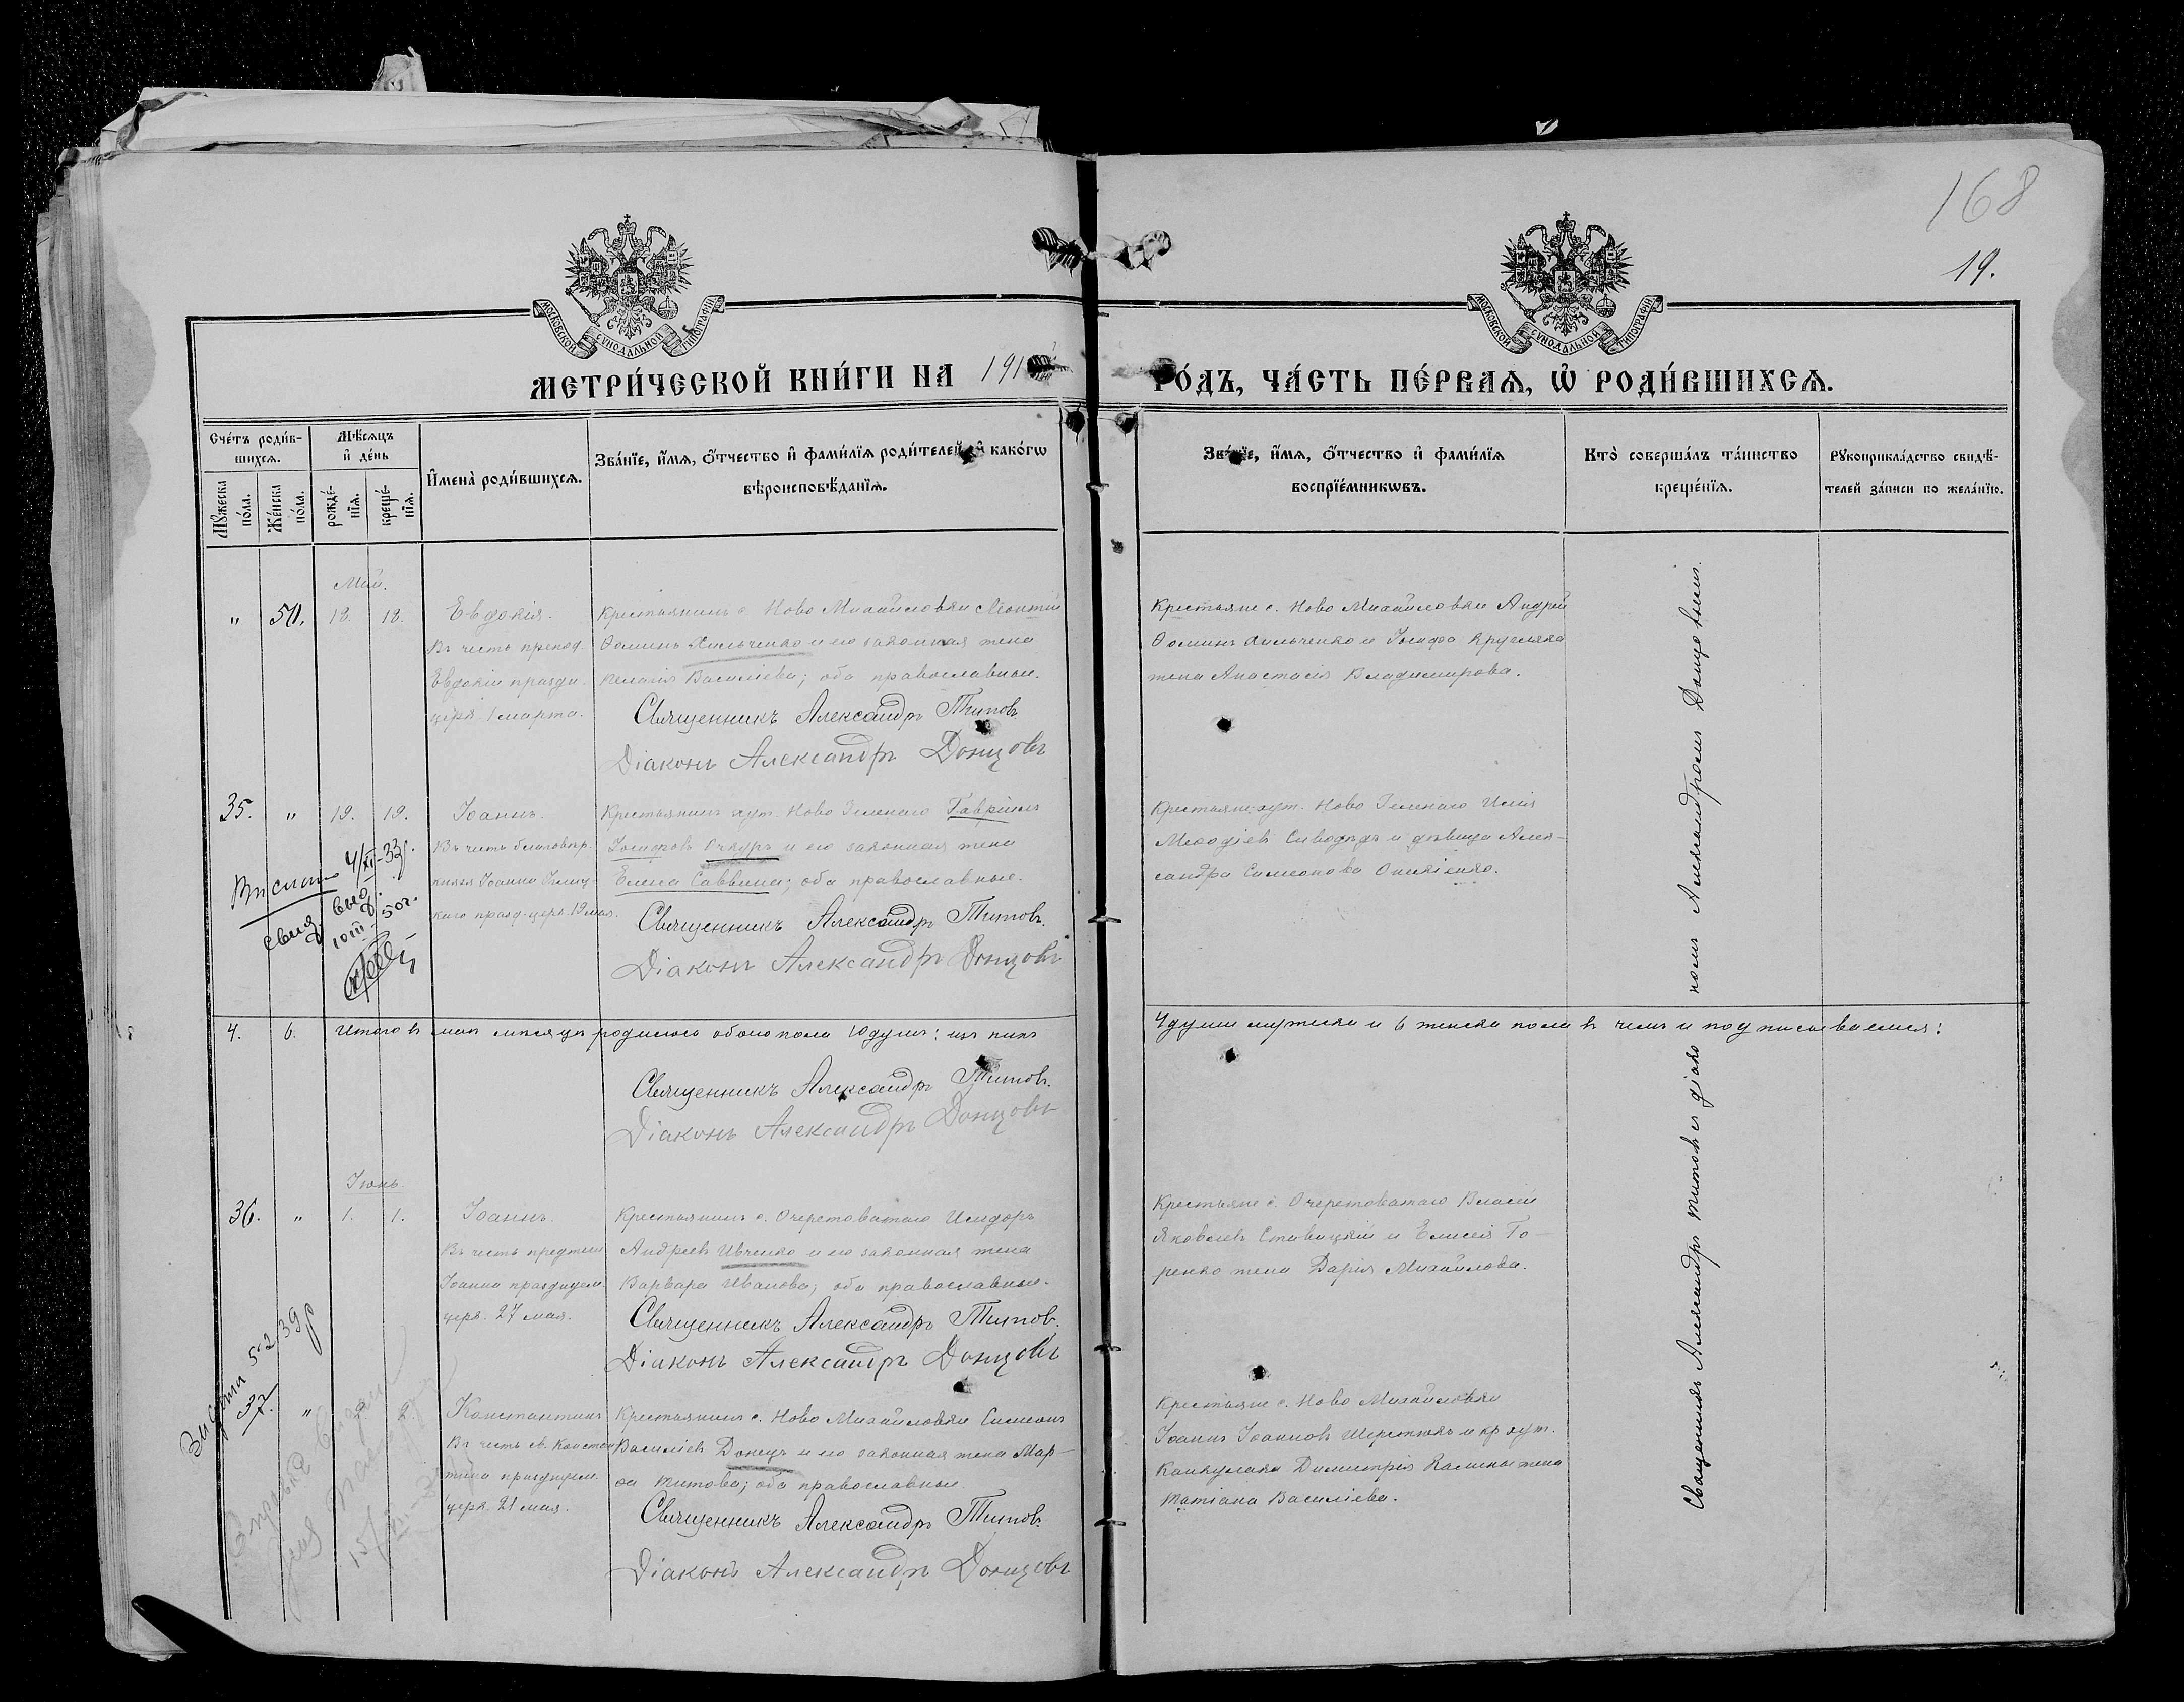 168
19.
МОСКОВСКОЙ СѴНОДАЛЬНОЙ ТИПОГРАФІИ
МОСКОВСКОЙ СѴНОДАЛЬНОЙ ТИПОГРАФІИ
МЕТРИ́ЧЕСКОЙ КНИ́ГИ НА 191
ГО́ДЪ, ЧА́СТЬ ПЕ́РВАѦ, Ѡ҆ РОДИ́ВШИХСѦ.
Сче́тъ роди́в-
шихсѧ.
Мꙋ́жеска по́ла.
Же́нска по́ла.
Мѣ́сѧцъ
и҆ де́нь
рожде́-
нїѧ.
креще́-
нїѧ.
И҆мена̀ роди́вшихсѧ.
Зва́нїе, и҆́мѧ, ѻ҆́тчество и҆ фами́лїѧ роди́телей, и҆ како́гѡ
вѣроисповѣ́данїѧ.
Зва́нїе, и҆́мѧ, ѻ҆́тчество и҆ фами́лїѧ
воспрїе́мникѡвъ.
Кто̀ соверша́лъ та́инство
креще́нїѧ.
Рꙋкоприкла́дство свидѣ́-
телей за́писи по жела́нїю.
Май.
" 50. 18. 18. Евдокія.
Въ честь препод.
Евдокіи праздн.
церк. 1 марта.
Крестьянинъ с. Ново Михайловки Леонтій
Ѳоминъ Хильченко и его законная жена
Пелагія Васильева; оба православные.
Священникъ Александръ Титовъ
Діаконъ Александръ Донцовъ
Крестьяне с. Ново Михайловки Андрей
Ѳоминъ Хильченко и
жена Анастасія Владимирова.
35. " 19. 19. Іоаннъ.
Въ честь благовѣр.
князя Іоанна
празд. церк. 19 мая.
Крестьянинъ хут. Ново Зеленаго Гавріилъ
Очкуръ и его законная жена
Елена Саввина; оба православные.
Священникъ Александръ Титовъ.
Діаконъ Александръ Донцовъ
Крестьяне хут. Ново Зеленаго Илія
Меѳодіевъ и дѣвица Алек-
сандра Симеонова
4. 6. Итого в мае мѣсяцѣ родилось обоего пола 10 душъ: изъ нихъ
4 души мужска и 6 женска пола в чемъ и подписываемся:
Священникъ Александръ Титовъ.
Діаконъ Александръ Донцовъ
Іюнь.
36. " 1. 1. Іоаннъ.
Въ честь предтечи
Іоанна празднуем.
церк. 27 мая.
Крестьянинъ с. Очеретоватаго Исидоръ
Андреевъ Ивченко и его законная жена
Варвара Иванова; оба православные.
Священникъ Александръ Титовъ.
Діаконъ Александръ Донцовъ
Крестьяне с. Очеретоватаго Власій
Яковлевъ Ставицкій и Елисея Го-
ренко жена Дарія Михайлова.
37. " 2. 2. Константинъ
Въ честь св. Констан
тина празднуем.
церк. 21 мая.
Крестьянинъ с. Ново Михайловки Симеонъ
Васильевъ Донецъ и его законная жена Мар-
ѳа Титова; оба православные
Священникъ Александръ Титовъ.
Діаконъ Александръ Донцовъ
Крестьяне с. Ново Михайловки
Іоаннъ Іоанновъ Шерстюкъ и кр. хут.
Димитрія Калины жена
Татіана Васильева.
Священникъ Александръ Титовъ с діако номъ Александромъ Донцовымъ.